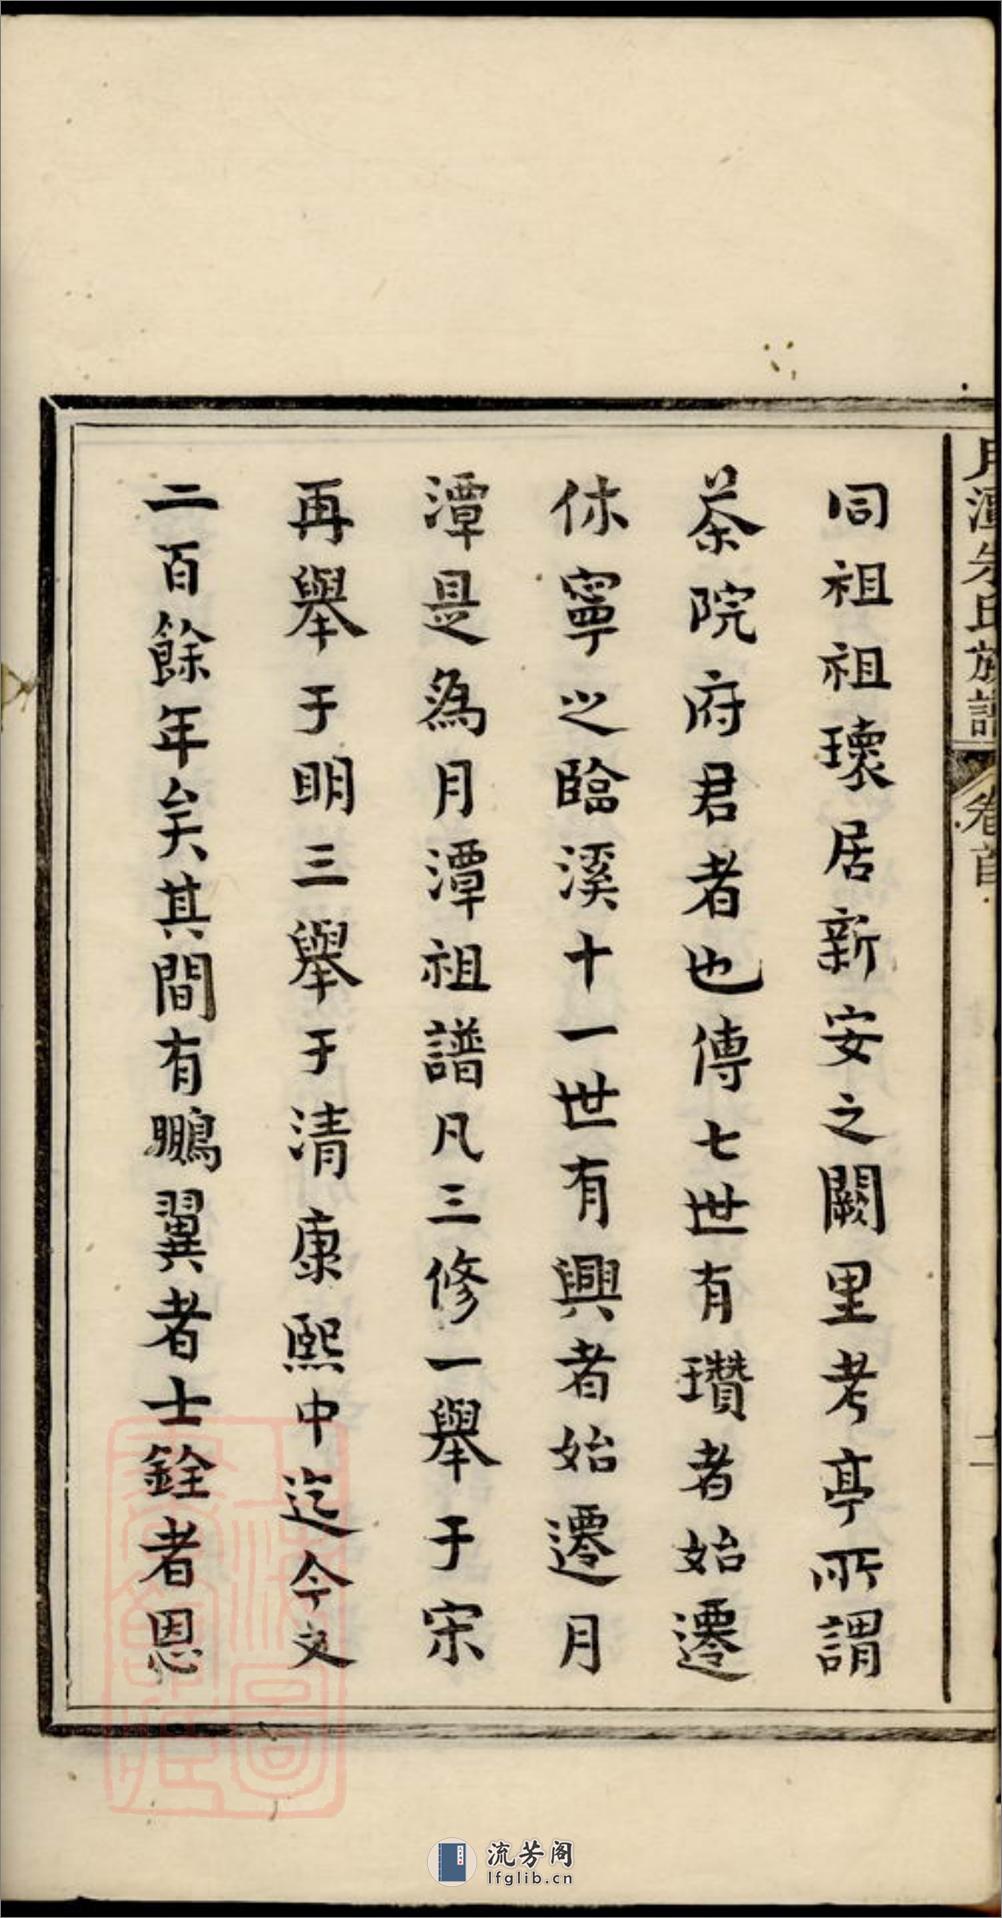 月潭朱氏族譜 卷首 二
同祖祖瓌居新安之闕里考亭所謂
茶院府君者也傳七世有瓚者始遷
休寧之臨溪十一世有興者始遷月
潭是為月潭祖譜凡三修一舉于宋
再舉于明三舉于清康熙中迄今又
二百餘年矣其間有鵬翼者士銓者恩
流芳阁
lfglib.cn